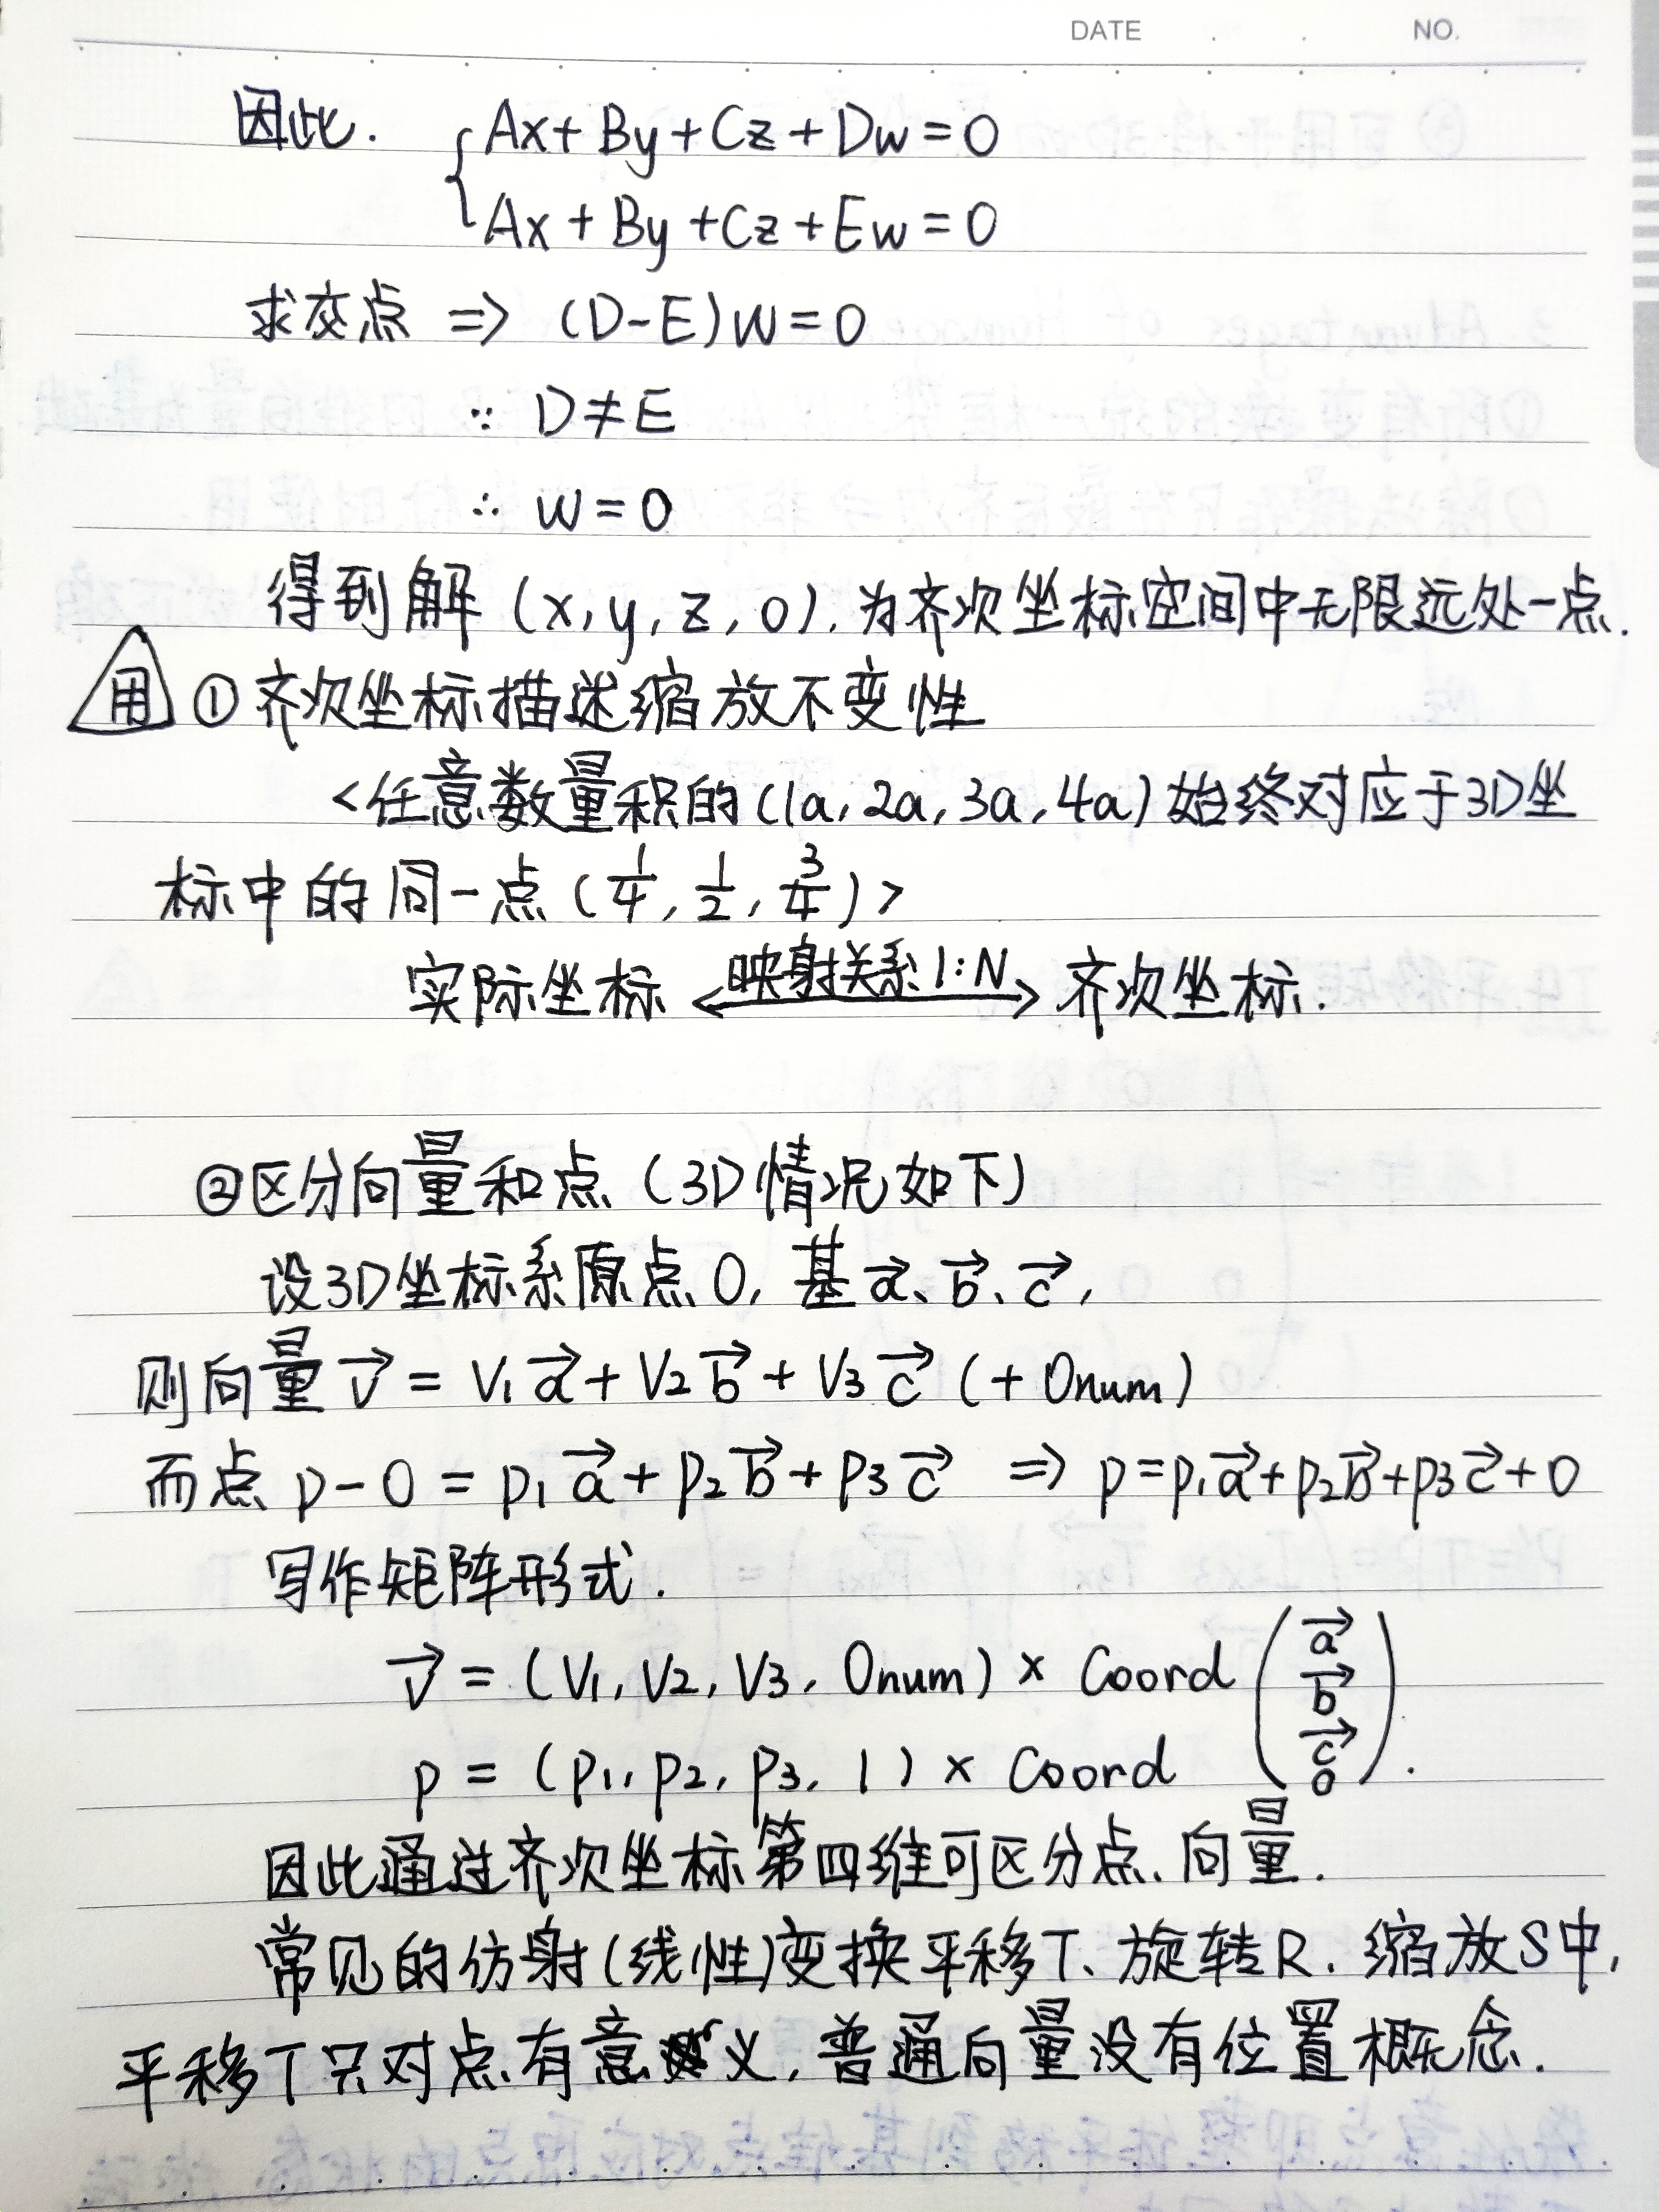 DATE NO.
因此. { Ax + By + Cz + Dw = 0
Ax + By + Cz + Ew = 0
求交点 ⇒ (D-E)W = 0
∵ D ≠ E
∴ W = 0
得到解 (x, y, z, 0), 为齐次坐标空间中无限远处一点.
用 ① 齐次坐标描述缩放不变性
<任意数量积的(1a, 2a, 3a, 4a)始终对应于3D坐
标中的同一点 (1/4, 1/2, 3/4)>
实际坐标 <映射关系 1:N> 齐次坐标.
②区分向量和点 (3D情况如下)
设3D坐标系原点O, 基 a⃗、b⃗、c⃗,
则向量 v⃗ = V1 a⃗ + V2 b⃗ + V3 c⃗ (+ 0num)
而点 p - O = p1 a⃗ + p2 b⃗ + p3 c⃗ ⇒ p = p1 a⃗ + p2 b⃗ + p3 c⃗ + O
写作矩阵形式.
v⃗ = (V1, V2, V3, 0num) × Coord (a⃗ b⃗ c⃗ o).
p = (p1, p2, p3, 1) × Coord
因此通过齐次坐标第四维可区分点、向量.
常见的仿射(线性)变换平移T、旋转R、缩放S中,
平移T只对点有意义, 普通向量没有位置概念.